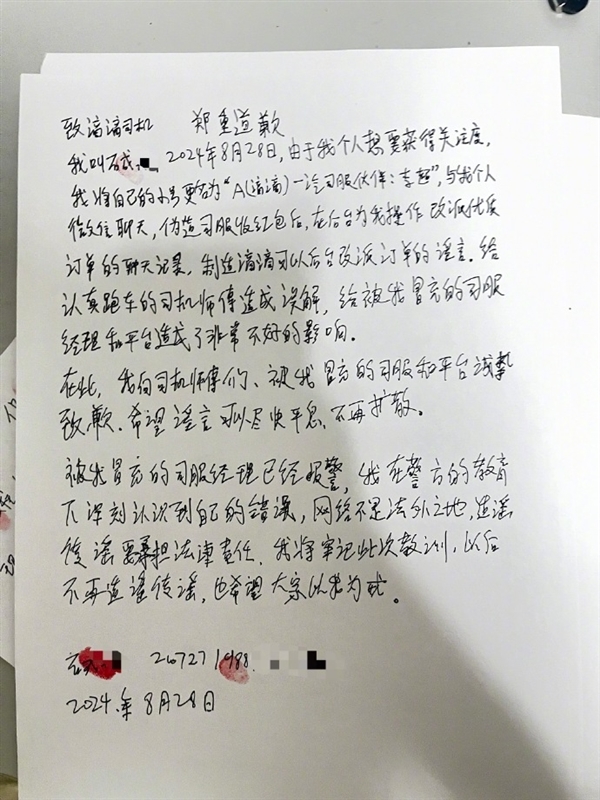 致滴滴司机 郑重道歉
我叫石成 2024年8月28日,由于我个人想要获得关注度,
我将自己的小号更名为“A(滴滴)一汽司服伙伴:李超”,与我个人
微信聊天,伪造司服收红包后,在后台为我操作改派优质
订单的聊天记录,制造滴滴可以后台改派订单的谣言.给
认真跑车的司机师傅造成误解,给被我冒充的司服
经理和平台造成了非常不好的影响.
在此,我向司机师傅们、被我冒充的司服和平台诚挚
致歉.希望谣言可以尽快平息、不再扩散。
被我冒充的司服经理已经报警,我在警方的教育
下深刻认识到自己的错误,网络不是法外之地,造谣
传谣要承担法律责任.我将牢记此次教训,以后
不再造谣传谣,也希望大家以我为戒。
267271988
2024.年8月28日